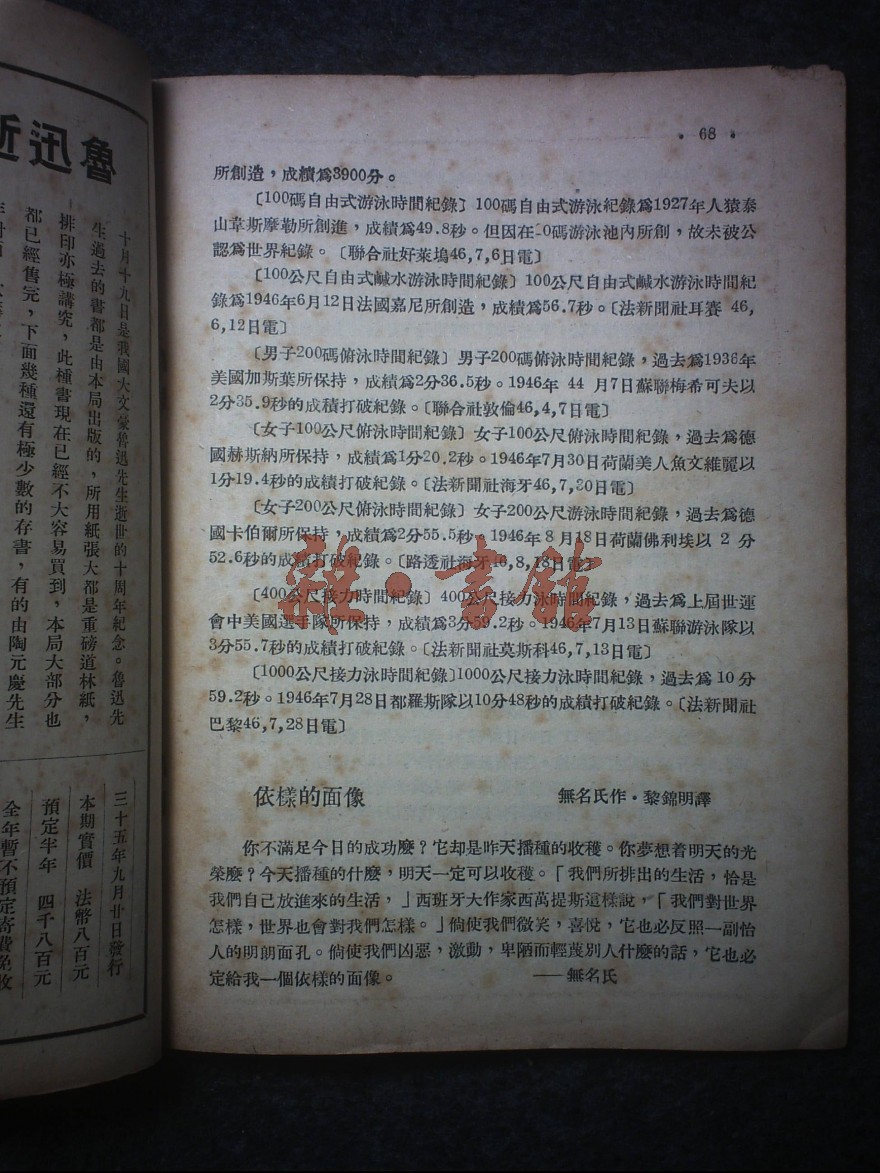 68
所創造，成績爲3900分。
〔100碼自由式游泳時間紀錄〕100碼自由式游泳紀錄爲1927年人猿泰
山韋斯摩勒所創進，成績爲49.8秒。但因在20碼游泳池內所創，故未被公
認爲世界紀錄。〔聯合社好萊塢46,7,6日電〕
〔100公尺自由式鹹水游泳時間紀錄〕100公尺自由式鹹水游泳時間紀
錄爲1946年6月12日法國嘉尼所創造，成績爲56.7秒。〔法新聞社耳賽 46,
6,12日電〕
〔男子200碼俯泳時間紀錄〕男子200碼俯泳時間紀錄，過去爲1936年
美國加斯葉所保持，成績爲2分36.5秒。1946年 44 月7日蘇聯梅希可夫以
2分35.9秒的成積打破紀錄。〔聯合社敦倫46,4,7日電〕
〔女子100公尺俯泳時間紀錄〕女子100公尺俯泳時間紀錄，過去爲德
國赫斯納所保持，成績爲1分20.2秒。1946年7月30日荷蘭美人魚文維麗以
1分19.4秒的成績打破紀錄。〔法新聞社海牙46,7,30日電〕
〔女子200公尺俯泳時間紀錄〕女子200公尺游泳時間紀錄，過去爲德
國卡伯爾所保持，成績爲2分55.5秒。1946年8月18日荷蘭佛利埃以 2 分
52.6秒的成績打破紀錄。〔路透社海牙46,8,18日電〕
〔400公尺接力時間紀錄〕400公尺接力泳時間紀錄，過去爲上屆世運
會中美國選手隊所保持，成績爲3分59.2秒。1946年7月13日蘇聯游泳隊以
3分55.7秒的成績打破紀錄。〔法新聞社莫斯科46,7,13日電〕
〔1000公尺接力泳時間紀錄〕1000公尺接力泳時間紀錄，過去爲 10 分
59.2秒。1946年7月28日都羅斯隊以10分48秒的成績打破紀錄。〔法新聞社
巴黎46,7,28日電〕
依樣的面像　無名氏作・黎錦明譯
你不滿足今日的成功麼？它却是昨天播種的收穫。你夢想着明天的光
榮麼？今天播種的什麼，明天一定可以收穫。「我們所排出的生活，恰是
我們自己放進來的生活，」西班牙大作家西萬提斯這樣說，「我們對世界
怎樣，世界也會對我們怎樣。」倘使我們微笑，喜悅，它也必反照一副怡
人的明朗面孔。倘使我們凶惡，激動，卑陋而輕蔑別人什麼的話，它也必
定給我一個依樣的面像。　——無名氏
雜・書館
魯迅逝
十月十九日是我國大文豪魯迅先生逝世的十周年紀念。魯迅先
生過去的書都是由本局出版的，所用紙張大都是重磅道林紙，
排印亦極講究，此種書現在已經不大容易買到，本局大部分也
都已經售完，下面幾種還有極少數的存書，有的由陶元慶先生
三十五年九月廿日發行
本期實價　法幣八百元
預定半年　四千八百元
全年暫不預定寄費免收